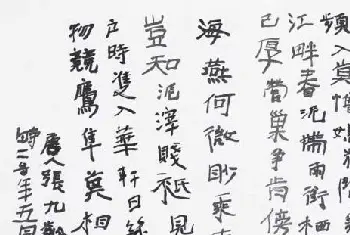 頻入莫憎
江畔春泥帶雨銜栖
已厚嘗巢爭肯傍
海燕何微眇乘
豈知泥滓賤祇見
戶時進入華軒日
物競鷹隼莫相
唐人張九齡
時二零年五月